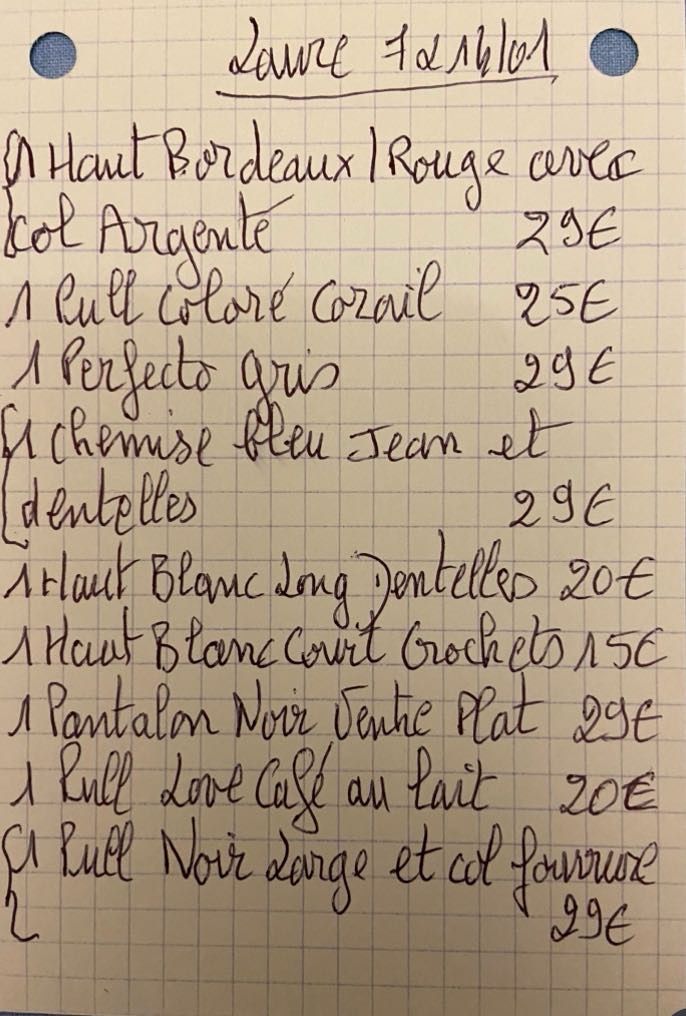 Laure 7 & 14/01
1 Haut Bordeaux/Rouge avec
col Argenté 29€
1 Pull coloré Corail 25€
1 Perfecto gris 29€
1 chemise bleu Jean et
dentelles 29€
1 Haut Blanc Long Dentelles 20€
1 Haut Blanc Court Crochets 15€
1 Pantalon Noir Ventre Plat 29€
1 Pull Love Café au lait 20€
1 Pull Noir Large et col fourrure
29€